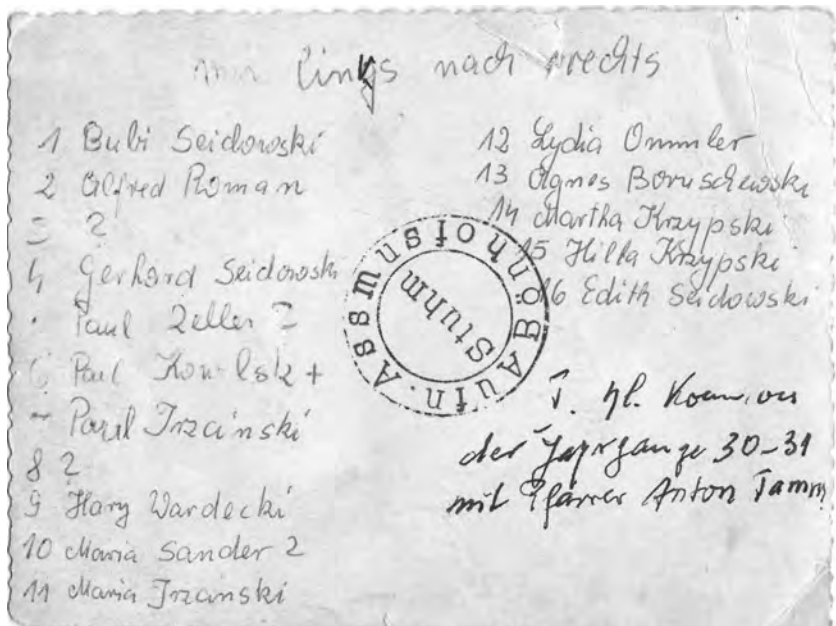 von links nach rechts
1 Bubi Seidowski
2 Alfred Roman
3 ?
4 Gerhard Seidowski
Paul Zeller ?
6 Paul +
7 Paul Trzcinski
8 ?
9 Harry Wardecki
10 Maria Sander ?
11 Maria Trzcinski
12 Lydia Ommler
13 Agnes Boruschewski
14 Martha Krzypski
15 Hilla Krzypski
16 Edith Seidowski
Aufn. Assmus foto Bönhof
Stuhm
I. hl. Kommion
der Jahrgänge 30-31
mit Pfarrer Anton Tamm